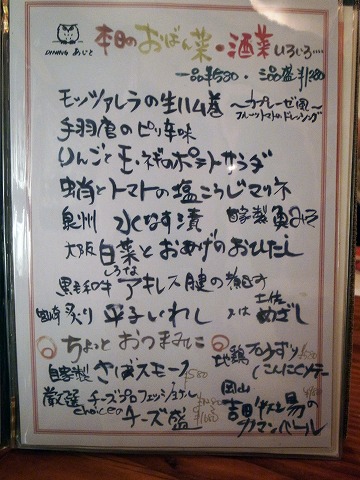 DINING あじと
本日のおばん菜・酒菜いろいろ....
一品¥580・三品盛¥1,380
モッツァレラの生ハム巻 〜カプレーゼ風〜
フルーツトマトのドレッシング
手羽唐のピリ辛味
りんごと玉ねぎのポテトサラダ
蛸とトマトの塩こうじマリネ
泉州 水なす漬 自家製 魚みそ
大阪 白菜とおあげのおひたし
しろな
黒毛和牛 アキレス腱の煮込み
炙り 平子いわし 又は 土佐 めざし
ちょっとおつまみに
自家製 さばスモーク ¥580
地鶏 石ずり ¥580
(こんにくソテー)
厳選 チーズプロフェッショナル
choiceの チーズ盛
岡山
吉田牧場の
カマンベール